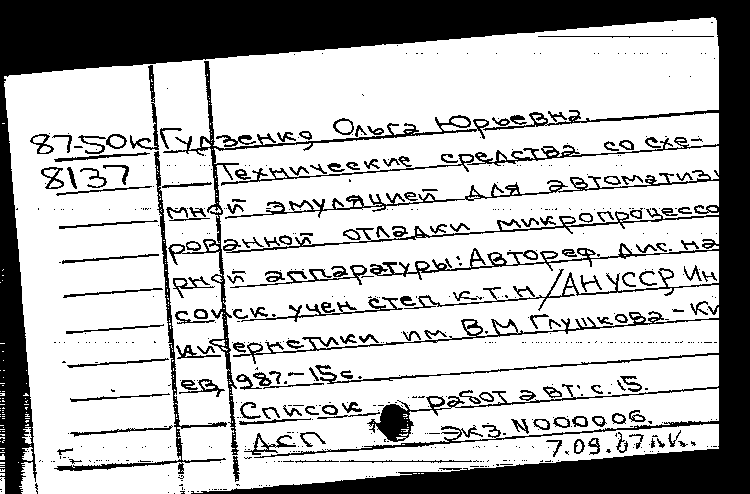 87-50к Гудзенко, Ольга Юрьевна.
8137 Технические средства со схе-
мной эмуляцией для автоматизи
рованной отладки микропроцессо
рной аппаратуры: Автореф. дис. на
соиск. учен степ. к.т.н / АН УССР, Ин
кибернетики им. В.М. Глушкова. - Ки
ев, 1987. - 15с.
Список работ авт: с. 15.
ДСП экз. N000006.
7.09.87